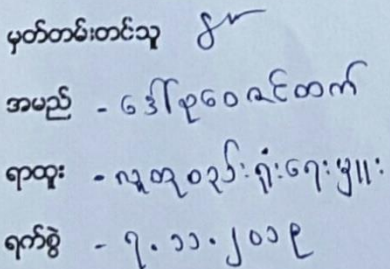 မှတ်တမ်းတင်သူ
အမည် - ဒေါ်စုဝေဇင်ထက်
ရာထူး - လူထုစည်းရုံးရေးမှူး
ရက်စွဲ - ၇.၁၁.၂၀၁၉